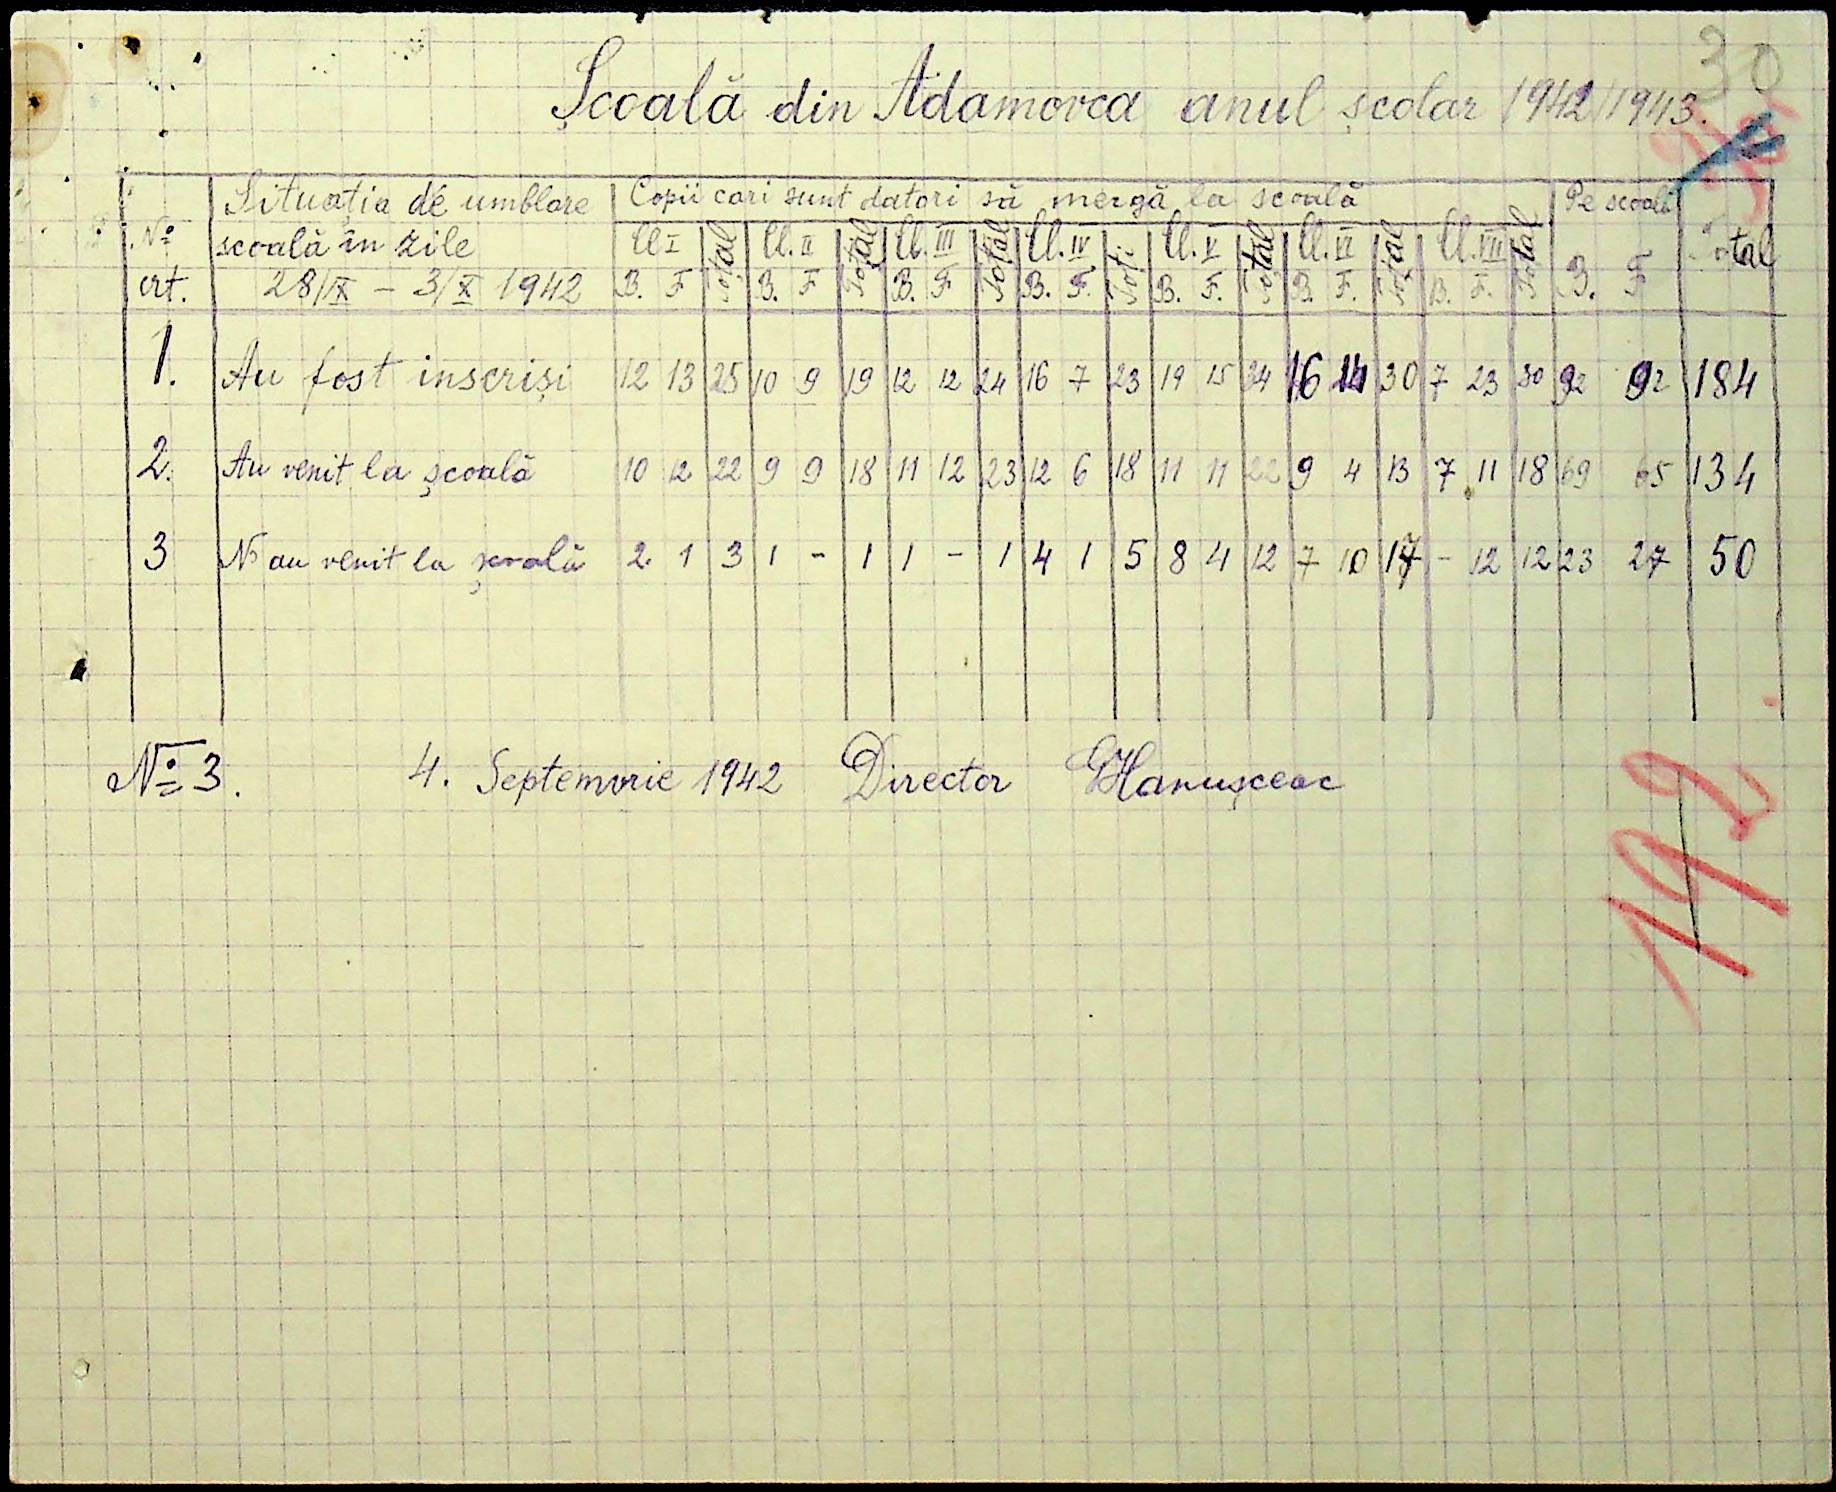 30
Școală din Adamovca anul școlar 1942/1943.
Nº crt. Situația de umblare școală în zile 28/IX – 3/X 1942 Copii cari sunt datori să mergă la școală Pe școală Total
Cl I Total Cl. II Total Cl. III Total Cl. IV Tot. Cl. V Total Cl. VI Total Cl. VII Total
B. F B. F B. F B. F. B. F. B. F. B. F. B. F
1. Au fost inscriși 12 13 25 10 9 19 12 12 24 16 7 23 19 15 34 16 14 30 7 23 30 92 92 184
2. Au venit la școală 10 12 22 9 9 18 11 12 23 12 6 18 11 11 22 9 4 13 7 11 18 69 65 134
3 N'au venit la școală 2 1 3 1 - 1 1 - 1 4 1 5 8 4 12 7 10 17 - 12 12 23 27 50
Nº 3. 4. Septemvrie 1942 Director
192